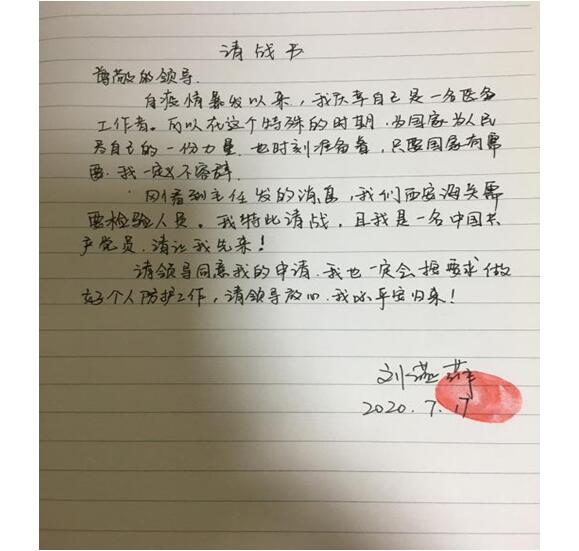 请战书
尊敬的领导.
自疫情暴发以来,我庆幸自己是一名医务
工作者。可以在这个特殊的时期.为国家为人民
尽自己的一份力量.也时刻准备着,只要国家有需
要.我一定义不容辞.
刚看到主任发的消息,我们西安海关需
要检验人员。我特此请战,且我是一名中国共
产党员.请让我先来!
请领导同意我的申请.我也一定会按要求做
好个人防护工作,请领导放心.我必平安归来!
刘燕萍
2020.7.17